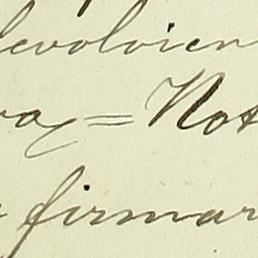 devolvien
ray = Not
firmar